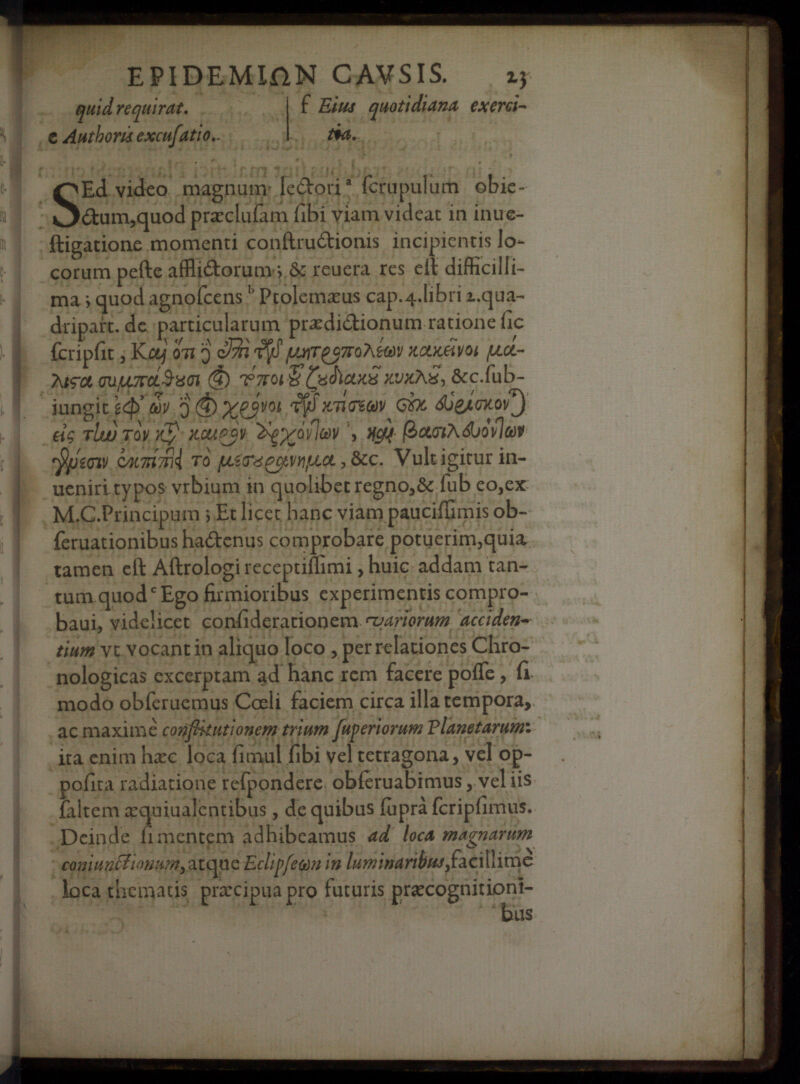 EPIDEMIΩN CAVSIS. 23
quid requirat.
e Authoris excusatio.
f Eius quotidiana exerci-
tia.
SEd video magnum lectori ᵃ scrupulum obie-
ctum, quod præclusam sibi viam videat in inue-
stigatione momenti constructionis incipientis lo-
corum peste afflictorum; & reuera res est difficilli-
ma; quod agnoscens ᵇ Ptolemæus cap.4.libri 2.qua-
dripart. de particularum prædictionum ratione sic
scripsit, Καὶ ὅτι ἢ ἐπὶ τῶν μητροπόλεων κακεῖνοι μά-
λιστα συμπαθοῦσι οἱ τόποι τοῦ ζωδιακοῦ κυκλοῦ, &c. sub-
iungit ἐφ’ ὧν ἢ οἱ χρόνοι τῶν κτίσεων οὐχ εὑρίσκον)
εἰς τὴν τὸν κατὰ καιρὸν ἀρχόντων, καὶ βασιλευόντων
γένεσιν ἐκπίπτει τὸ μεσουράνημα, &c. Vult igitur in-
ueniri typos vrbium in quolibet regno, & sub eo, ex
M.C. Principum; Et licet hanc viam paucissimis ob-
seruationibus hactenus comprobare potuerim, quia
tamen est Astrologi receptissimi, huic addam tan-
tum quod ᶜ Ego firmioribus experimentis compro-
baui, videlicet considerationem variorum acciden-
tium vt vocant in aliquo loco, per relationes Chro-
nologicas excerptam ad hanc rem facere posse, si
modo obseruemus Cœli faciem circa illa tempora,
ac maximè constitutionem trium superiorum Planetarum:
ita enim hæc loca simul sibi vel tetragona, vel op-
posita radiatione respondere obseruabimus, vel iis
saltem æquiualentibus, de quibus suprà scripsimus.
Deinde si mentem adhibeamus ad loca magnarum
coniunctionum, atque Eclipseωn in luminaribus, facillimè
loca thematis præcipua pro futuris præcognitioni-
bus